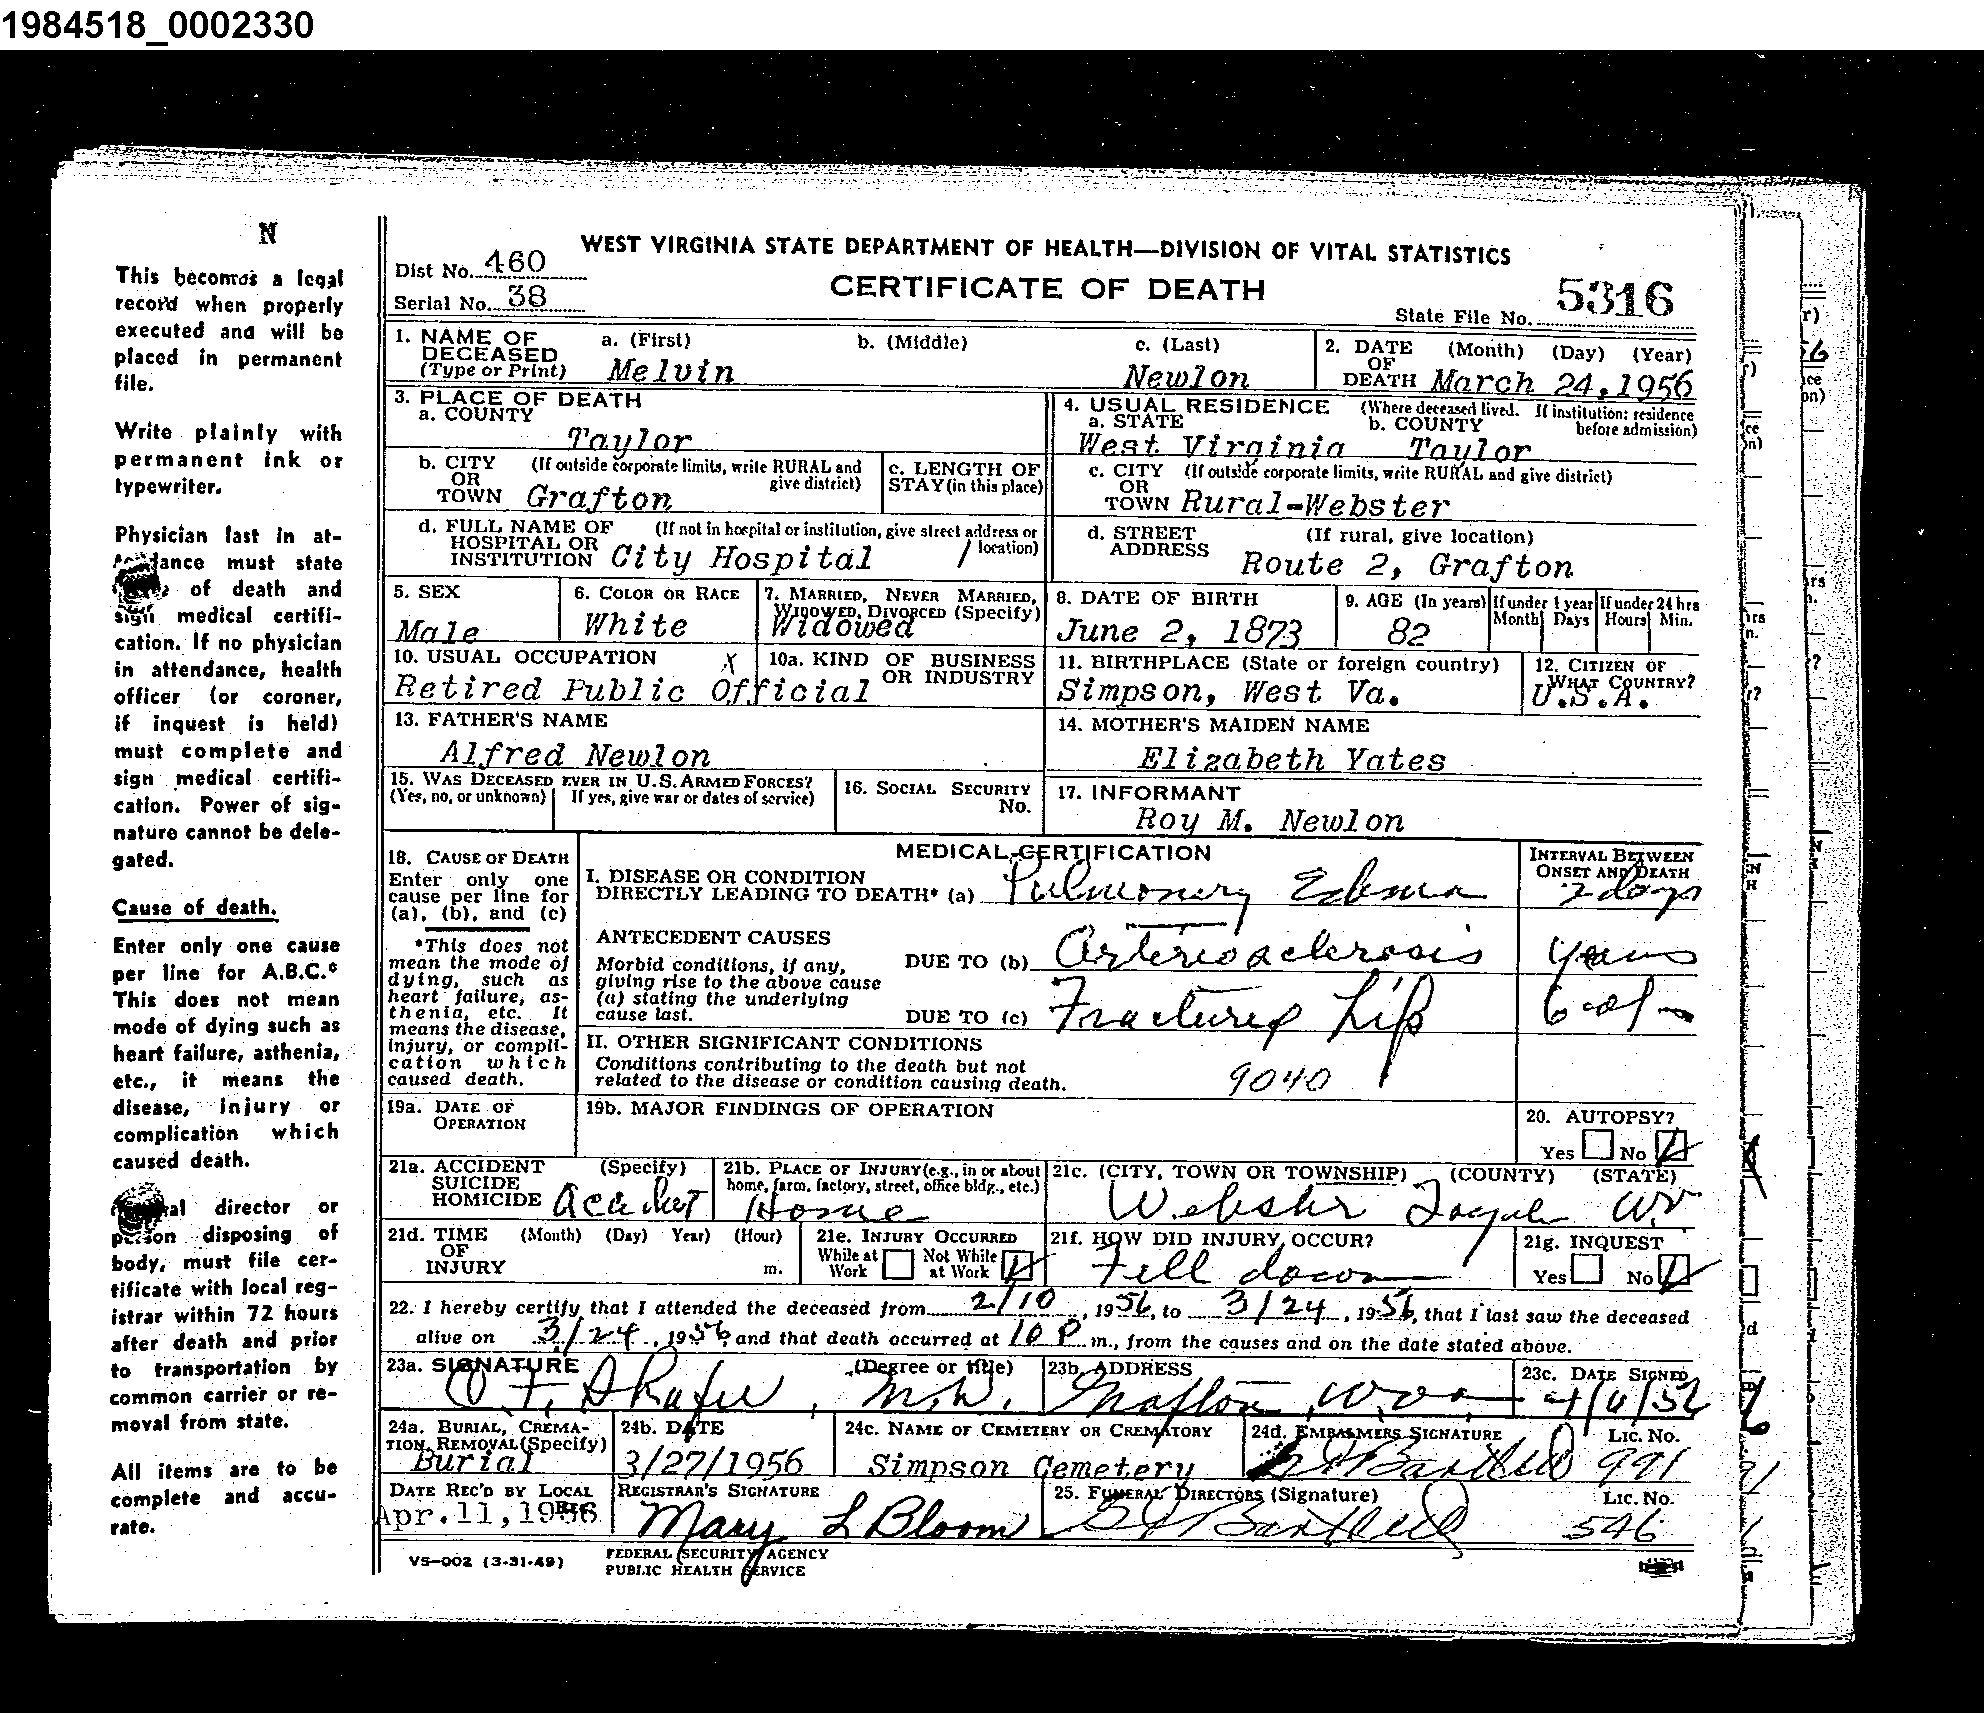 1984518_0002330
N
This becomes a legal
record when properly
executed and will be
placed in permanent
file.
Write plainly with
permanent ink or
typewriter.
Physician last in at-
tendance must state
of death and
sign medical certifi-
cation. If no physician
in attendance, health
officer (or coroner,
if inquest is held)
must complete and
sign medical certifi-
cation. Power of sig-
nature cannot be dele-
gated.
Cause of death.
Enter only one cause
per line for A.B.C.*
This does not mean
mode of dying such as
heart failure, asthenia,
etc., it means the
disease, injury or
complication which
caused death.
director or
person disposing of
body, must file cer-
tificate with local reg-
istrar within 72 hours
after death and prior
to transportation by
common carrier or re-
moval from state.
All items are to be
complete and accu-
rate.
WEST VIRGINIA STATE DEPARTMENT OF HEALTH—DIVISION OF VITAL STATISTICS
Dist No. 460
CERTIFICATE OF DEATH
Serial No. 38
State File No. 5316
1. NAME OF DECEASED (Type or Print) a. (First) Melvin b. (Middle) c. (Last) Newlon
2. DATE OF DEATH (Month) (Day) (Year) March 24, 1956
3. PLACE OF DEATH
a. COUNTY Taylor
4. USUAL RESIDENCE (Where deceased lived. If institution: residence before admission)
a. STATE West Virginia b. COUNTY Taylor
b. CITY OR TOWN (If outside corporate limits, write RURAL and give district) Grafton
c. LENGTH OF STAY (in this place)
c. CITY OR TOWN (If outside corporate limits, write RURAL and give district) Rural-Webster
d. FULL NAME OF HOSPITAL OR INSTITUTION (If not in hospital or institution, give street address or location) City Hospital /
d. STREET ADDRESS (If rural, give location) Route 2, Grafton
5. SEX Male
6. COLOR OR RACE White
7. MARRIED, NEVER MARRIED, WIDOWED, DIVORCED (Specify) Widowed
8. DATE OF BIRTH June 2, 1873
9. AGE (In years) 82
If under 1 year Month Days
If under 24 hrs Hours Min.
10. USUAL OCCUPATION X Retired Public Official
10a. KIND OF BUSINESS OR INDUSTRY
11. BIRTHPLACE (State or foreign country) Simpson, West Va.
12. CITIZEN OF WHAT COUNTRY? U.S.A.
13. FATHER'S NAME Alfred Newlon
14. MOTHER'S MAIDEN NAME Elizabeth Yates
15. WAS DECEASED EVER IN U.S. ARMED FORCES? (Yes, no, or unknown) If yes, give war or dates of service)
16. SOCIAL SECURITY No.
17. INFORMANT Roy M. Newlon
18. CAUSE OF DEATH
Enter only one
cause per line for
(a), (b), and (c)
*This does not
mean the mode of
dying, such as
heart failure, as-
thenia, etc. It
means the disease,
injury, or compli-
cation which
caused death.
MEDICAL CERTIFICATION
INTERVAL BETWEEN ONSET AND DEATH
I. DISEASE OR CONDITION
DIRECTLY LEADING TO DEATH* (a) Pulmonary Edema 2 days
ANTECEDENT CAUSES
Morbid conditions, if any,
giving rise to the above cause
(a) stating the underlying
cause last.
DUE TO (b) Arteriosclerosis years
DUE TO (c) Fractured Hip
II. OTHER SIGNIFICANT CONDITIONS
Conditions contributing to the death but not
related to the disease or condition causing death.
9040
19a. DATE OF OPERATION
19b. MAJOR FINDINGS OF OPERATION
20. AUTOPSY? Yes No
21a. ACCIDENT SUICIDE HOMICIDE (Specify) Accident
21b. PLACE OF INJURY (e.g., in or about home, farm, factory, street, office bldg., etc.) Home
21c. (CITY, TOWN OR TOWNSHIP) (COUNTY) (STATE) Webster Taylor W.V
21d. TIME OF INJURY (Month) (Day) Year) (Hour) m.
21e. INJURY OCCURRED While at Work Not While at Work
21f. HOW DID INJURY OCCUR? Fell down
21g. INQUEST Yes No
22. I hereby certify that I attended the deceased from 2/10, 1956, to 3/24, 1956, that I last saw the deceased
alive on 3/24, 1956 and that death occurred at 10 P m., from the causes and on the date stated above.
23a. SIGNATURE (Degree or title) M.D.
23b. ADDRESS Grafton, W. Va.
23c. DATE SIGNED
24a. BURIAL, CREMA-TION, REMOVAL (Specify) Burial
24b. DATE 3/27/1956
24c. NAME OF CEMETERY OR CREMATORY Simpson Cemetery
24d. EMBALMERS SIGNATURE LIC. NO. 991
DATE REC'D BY LOCAL Apr. 11, 1956
REGISTRAR'S SIGNATURE Mary L Bloom
25. FUNERAL DIRECTORS (Signature) LIC. NO. 546
VS-002 (3-31-49)
FEDERAL SECURITY AGENCY
PUBLIC HEALTH SERVICE